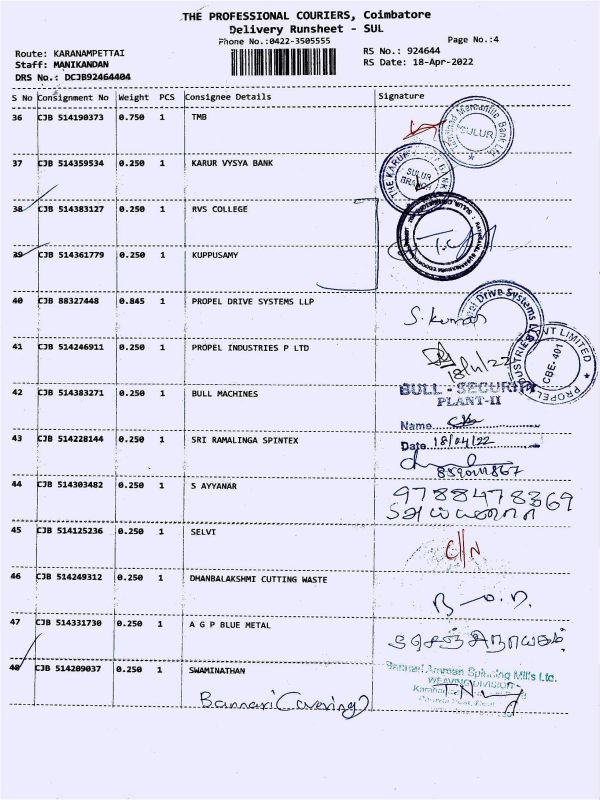 THE PROFESSIONAL COURIERS, Coimbatore
Delivery Runsheet - SUL
Phone No.:0422-3505555
Page No.:4
Route: KARANAMPETTAI
RS No.: 924644
Staff: MANIKANDAN
RS Date: 18-Apr-2022
DRS No.: DCJB92464404
S No Consignment No Weight PCS Consignee Details Signature
36 CJB 514190373 0.750 1 TMB
Mercantile Bank Ltd
SULUR
37 CJB 514359534 0.250 1 KARUR VYSYA BANK
THE KARUR BANK
SULUR
BRANCH
38 CJB 514383127 0.250 1 RVS COLLEGE
39 CJB 514361779 0.250 1 KUPPUSAMY
40 CJB 88327448 0.845 1 PROPEL DRIVE SYSTEMS LLP
S. kumar
Drive Systems
41 CJB 514246911 0.250 1 PROPEL INDUSTRIES P LTD
18/4/22
PROPEL INDUSTRIES PVT LIMITED
CBE- 401
42 CJB 514383271 0.250 1 BULL MACHINES
BULL - SECURITY
PLANT-II
Name
43 CJB 514228144 0.250 1 SRI RAMALINGA SPINTEX
Date 18/04/22
44 CJB 514303482 0.250 1 S AYYANAR
9788478369
45 CJB 514125236 0.250 1 SELVI
C/N
46 CJB 514249312 0.250 1 DHANBALAKSHMI CUTTING WASTE
47 CJB 514331730 0.250 1 A G P BLUE METAL
48 CJB 514209037 0.250 1 SWAMINATHAN
Bannari Amman Spinning Mills Ltd.
WEAVING DIVISION
Bannari (weaving)